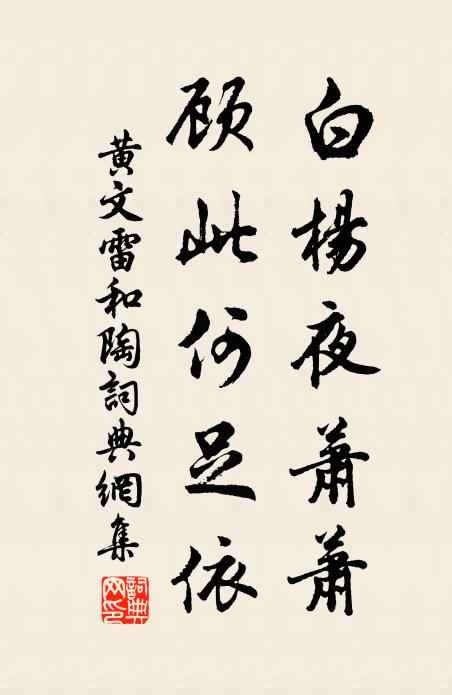 白楊夜蕭蕭
顧此何足依
黃文雷和陶詞典網集
詞典網印